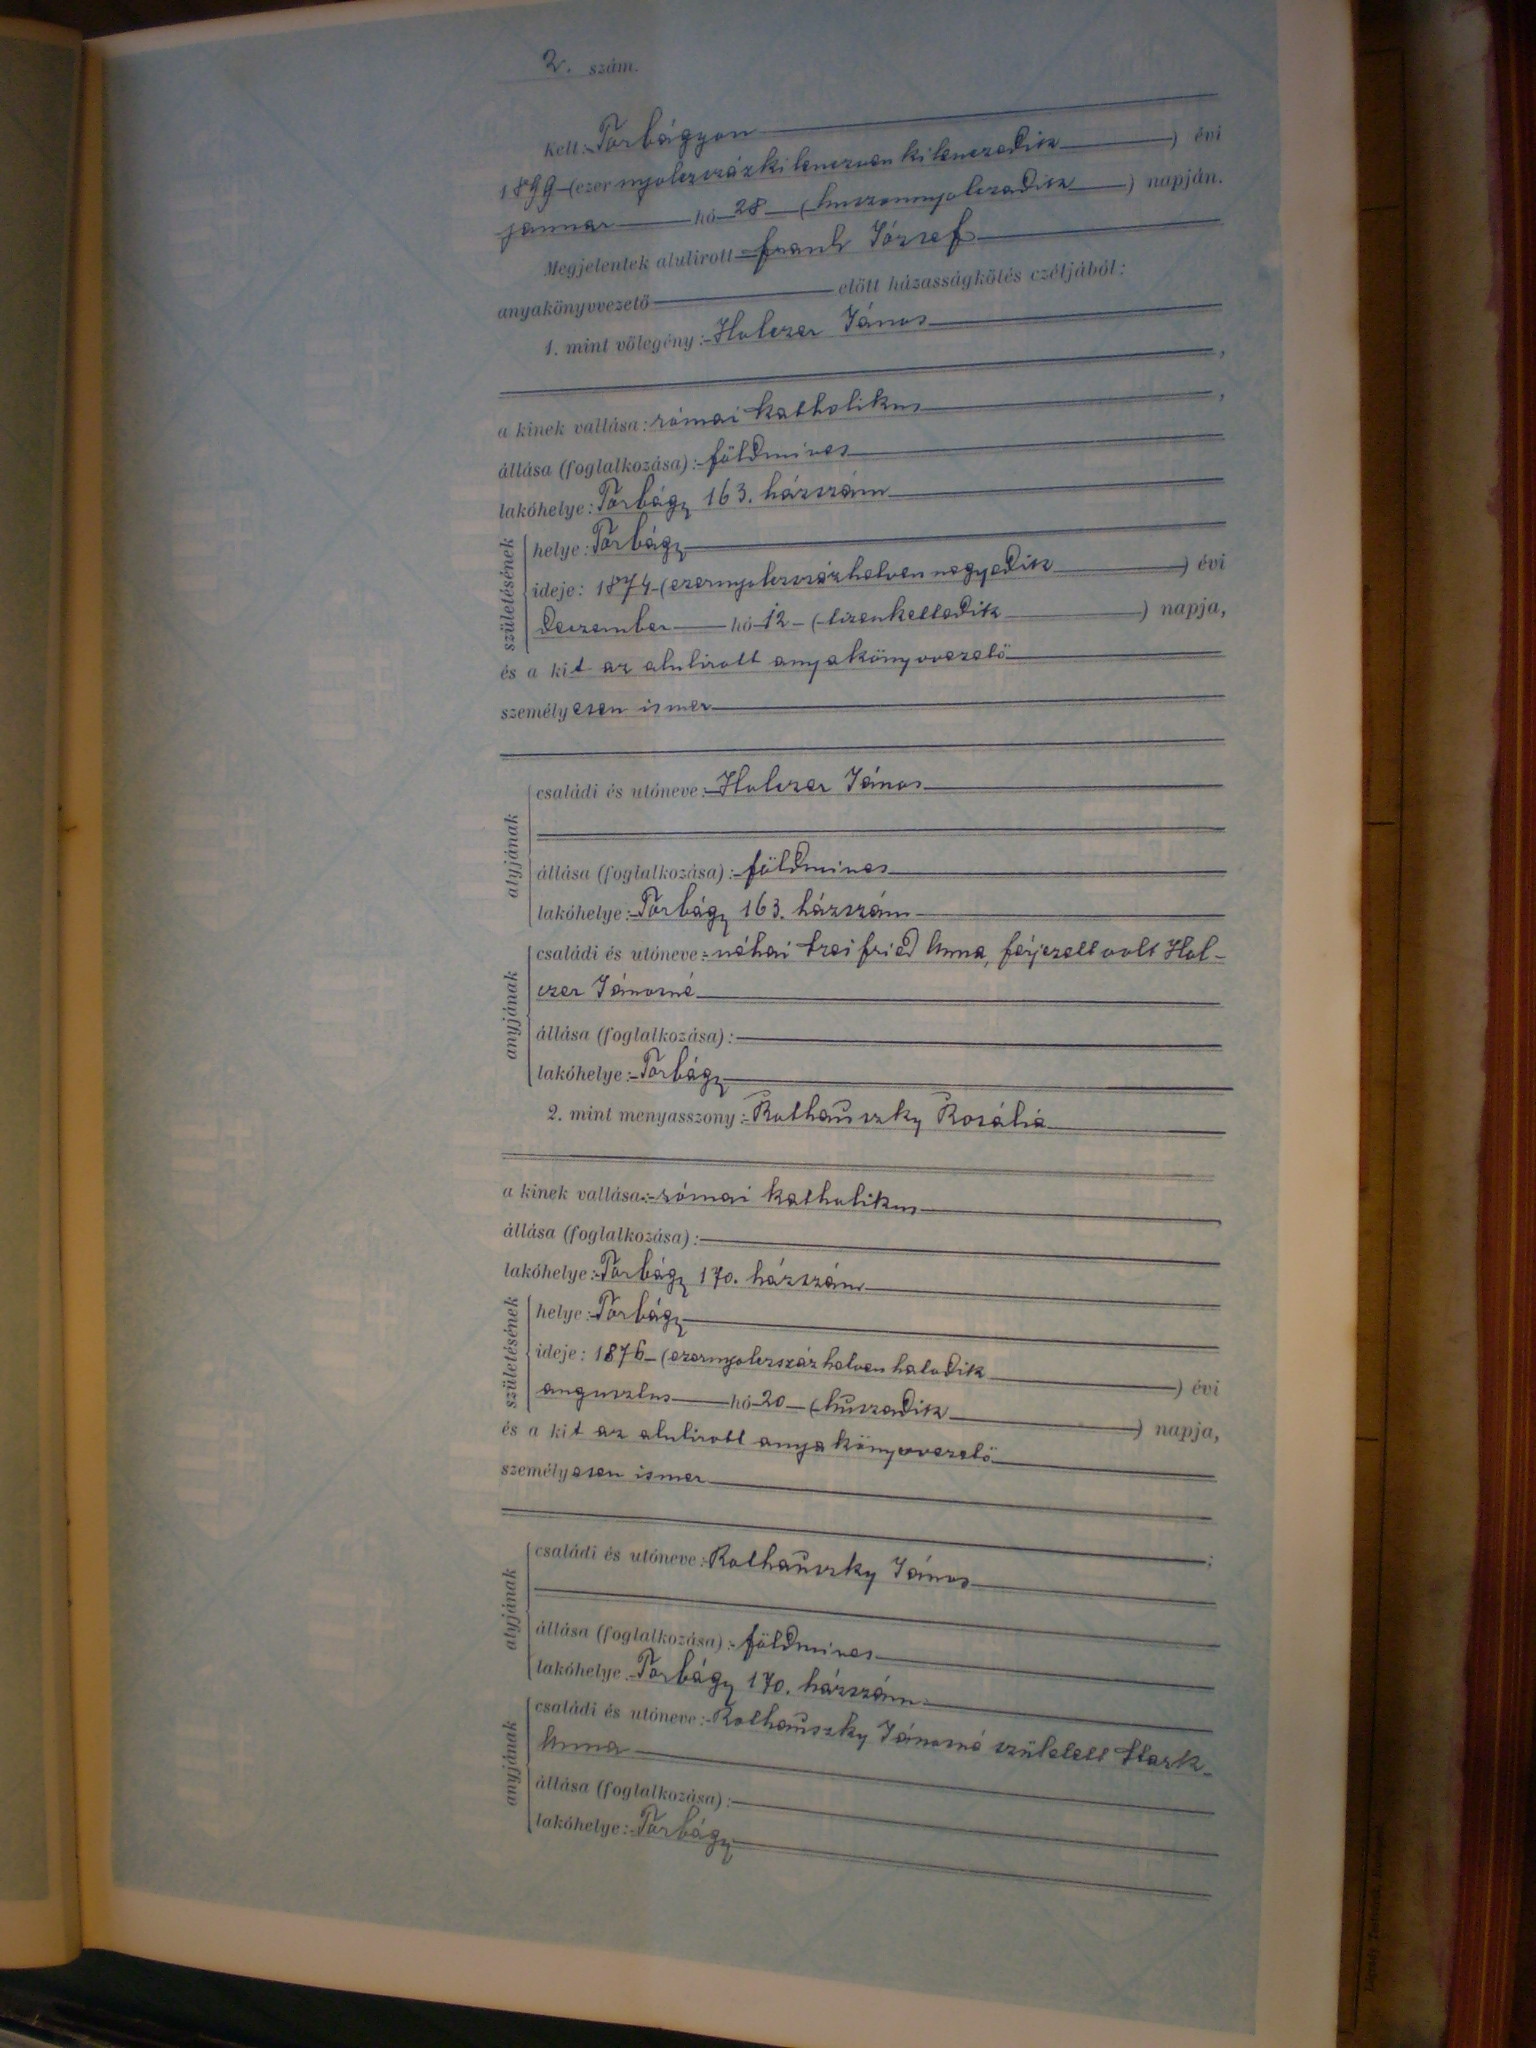 2. szám.
Kelt: Torbágyon
1899 (ezernyolczszázkilenczvenkilenczedik) évi
januar hó 28 (huszonnyolczadik) napján.
Megjelentek alulirott József
anyakönyvvezető előtt házasságkötés czéljából:
1. mint vőlegény: Holczer János
,
a kinek vallása: római katholikus,
állása (foglalkozása): földmives
lakóhelye: Torbágy 163. házszám
születésének
helye: Torbágy
ideje: 1874 (ezernyolczszázhetvennegyedik) évi
deczember hó 12 (tizenkettedik) napja,
és a kit az alulirott anyakönyvvezető
személyesen ismer
atyjának
családi és utóneve: Holczer János
állása (foglalkozása): földmives
lakóhelye: Torbágy 163. házszám
anyjának
családi és utóneve: néhai Szeifried Anna, férjezett volt Hol-
czer Jánosné
állása (foglalkozása):
lakóhelye: Torbágy
2. mint menyasszony: Rothauszky Rozália
a kinek vallása: római katholikus,
állása (foglalkozása):
lakóhelye: Torbágy 170. házszám
születésének
helye: Torbágy
ideje: 1876 (ezernyolczszázhetvenhatodik) évi
augusztus hó 20 (huszadik) napja,
és a kit az alulirott anyakönyvvezető
személyesen ismer
;
atyjának
családi és utóneve: Rothauszky János
állása (foglalkozása): földmives
lakóhelye Torbágy 170. házszám
anyjának
családi és utóneve: Rothauszky Jánosné született
Anna
állása (foglalkozása):
lakóhelye: Torbágy